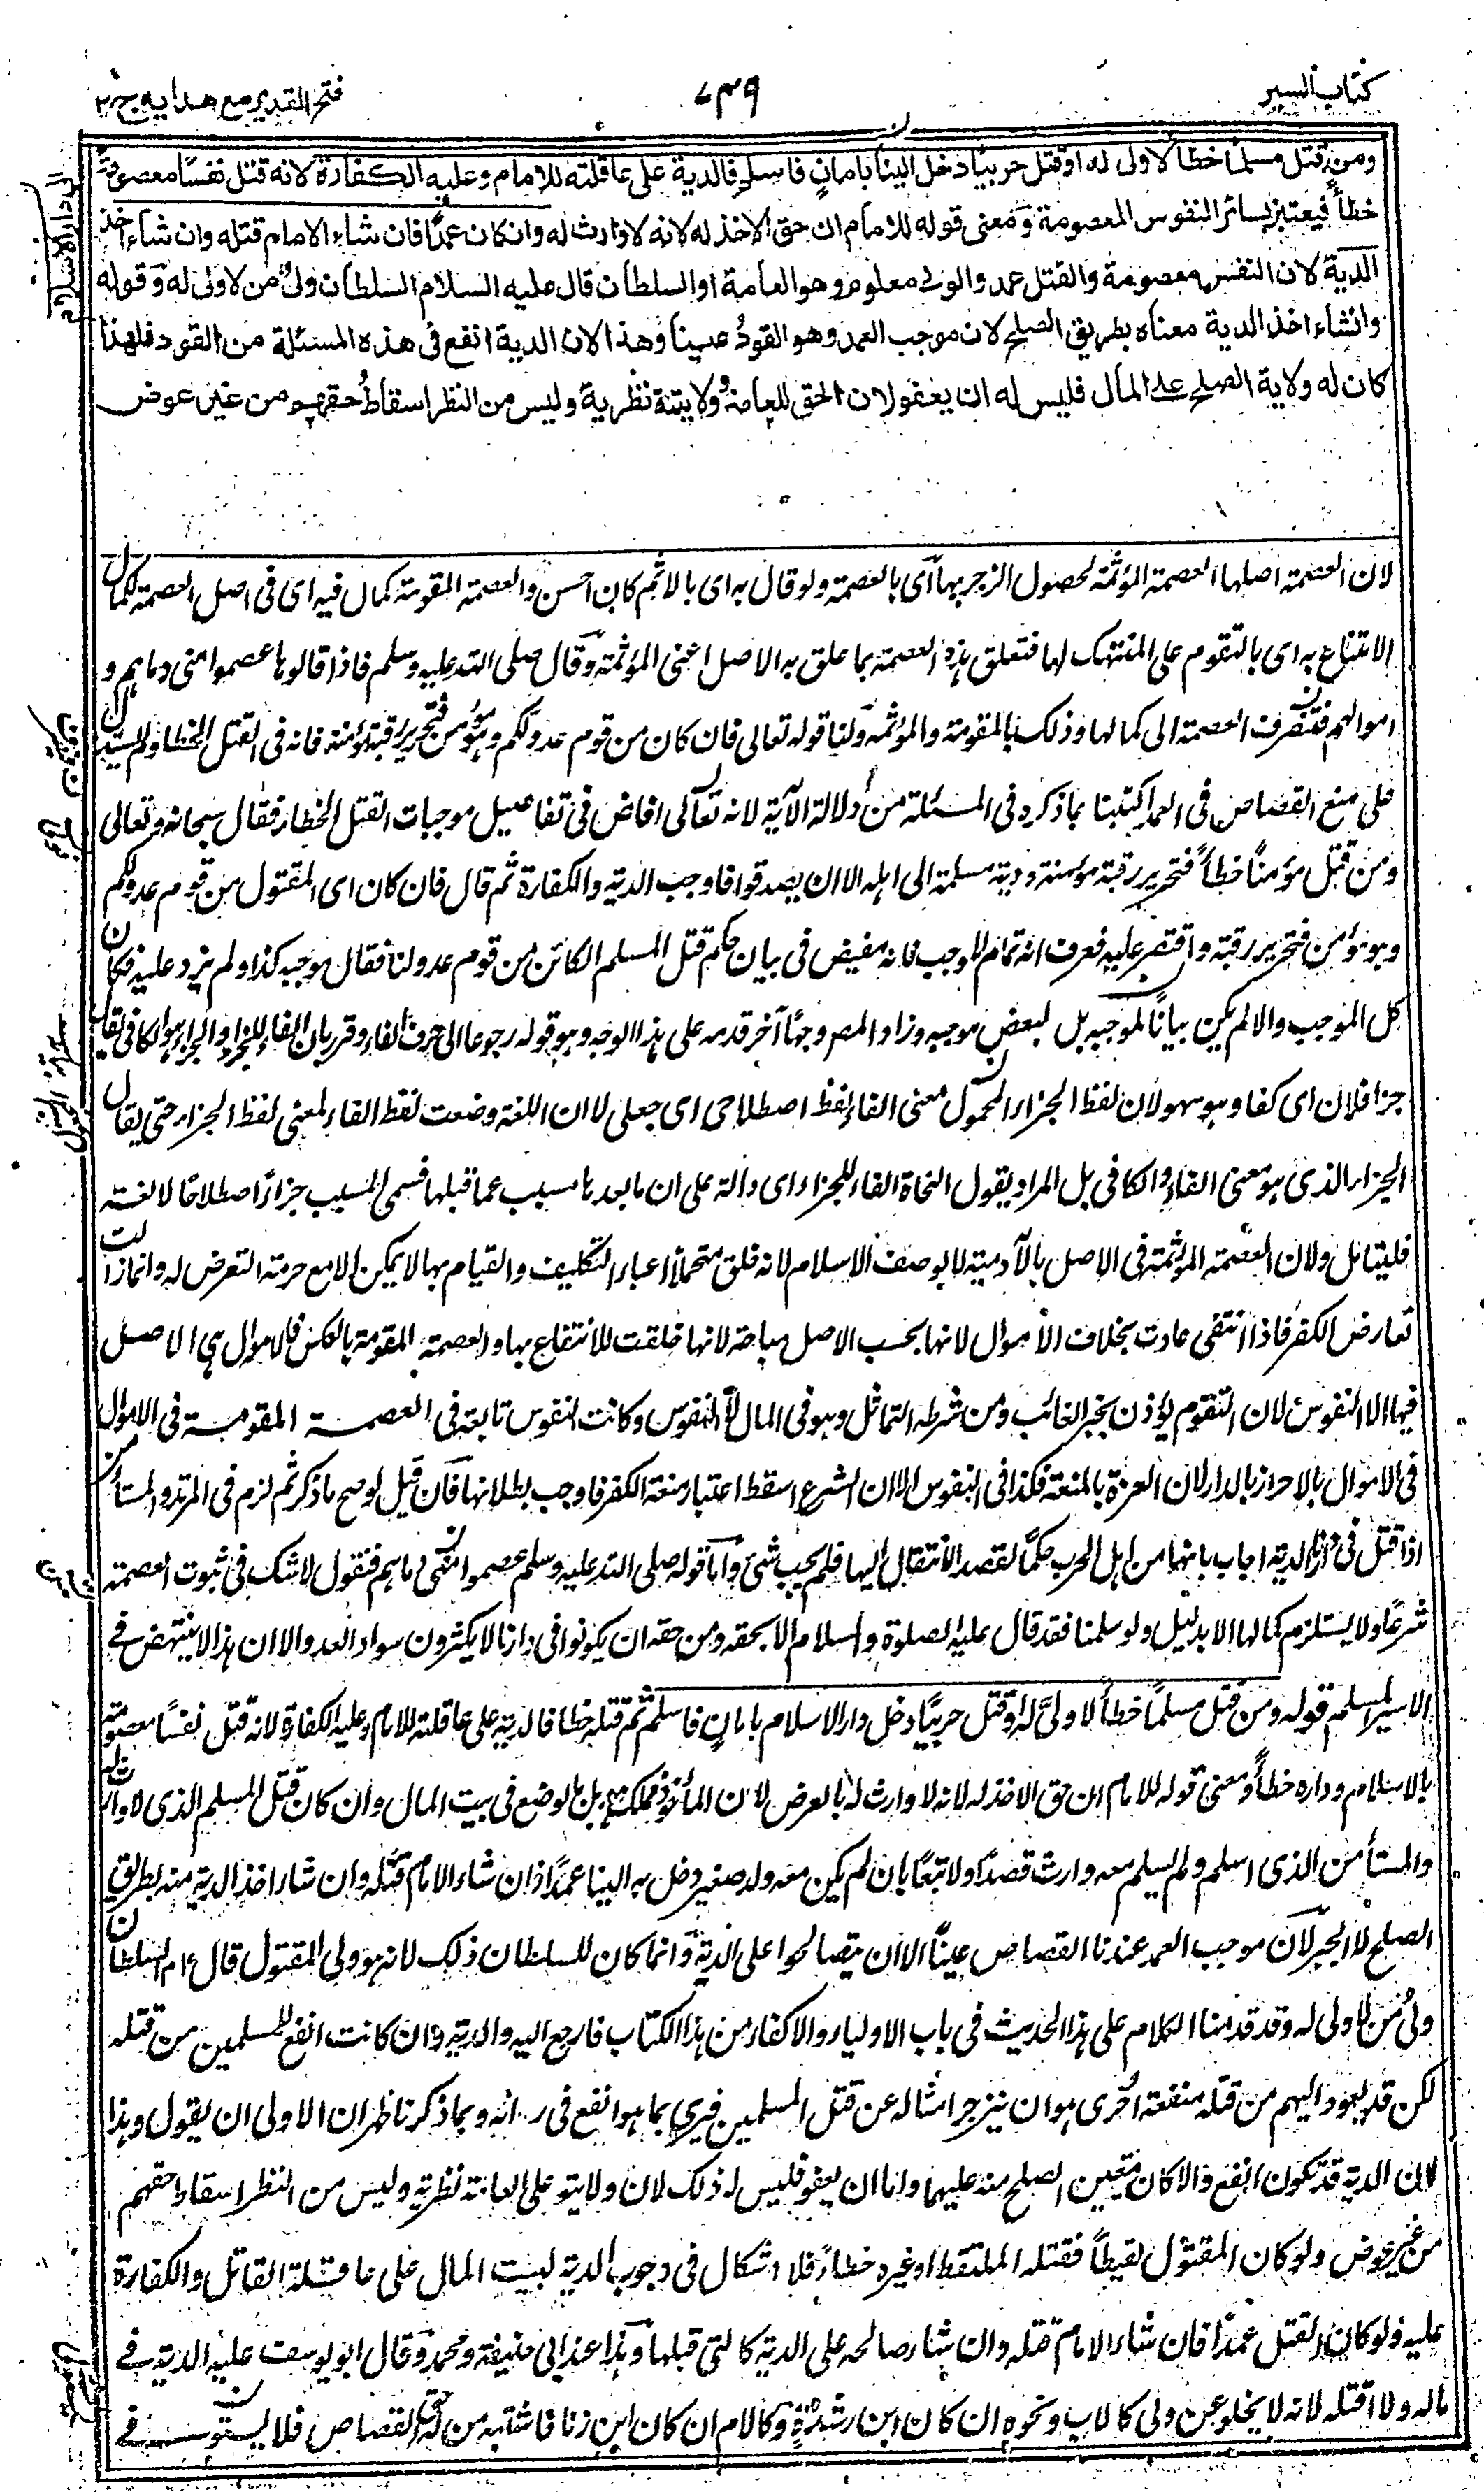 كتاب السير
٧٣٩
فتح القدير مع هدايه ج ٢
ومن قتل مسلما خطأ لا ولى له او قتل حربيا دخل الينا بامان فاسلم فالدية على عاقلته للامام وعليه الكفارة لانه قتل نفسًا معصومة
خطأ فيعتبر بسائر النفوس المعصومة ومعنى قوله للامام ان حق الاخذ له لانه لا وارث له وان كان عمدًا فان شاء الامام قتله وان شاء اخذ
الدية لان النفس معصومة والقتل عمد والولى معلوم وهو العامة او السلطان قال عليه السلام السلطان ولى من لا ولى له وقوله
وانشاء اخذ الدية معناه بطريق الصلح لان موجب العمد وهو القود عينا وهذا لان الدية انفع فى هذه المسئلة من القود فلهذا
كان له ولاية الصلح على المال فليس له ان يعفو لان الحق للعامة وولايته نظرية وليس من النظر اسقاط حقهم من غير عوض
لان العصمة اصلها العصمة المؤثمة لحصول الزجر بها اى بالعصمة ولو قال به اى بالاثم كان احسن والعصمة المقومة كمال فيه اى فى اصل العصمة لكمال
الامتناع به اى بالتقوم على المنتهك لها فتعلق هذه العصمة بما علق به الاصل اعنى المؤثمة وقال صلى الله عليه وسلم فاذا قالوها عصموا منى دماءهم و
اموالهم فتنصرف العصمة الى كمالها وذلك بالمقومة والمؤثمة ولنا قوله تعالى فان كان من قوم عدو لكم وهو مؤمن فتحرير رقبة مؤمنة فانه فى القتل الخطاء ولم يستدل
على منع القصاص فى العمد اكتفاء بما ذكره فى المسئلة من دلالة الآية لانه تعالى افاض فى تفاصيل موجبات القتل الخطاء فقال سبحانه وتعالى
ومن قتل مؤمنًا خطأً فتحرير رقبة مؤمنة ودية مسلمة الى اهله الا ان يصدقوا فاوجب الدية والكفارة ثم قال فان كان اى المقتول من قوم عدو لكم
وهو مؤمن فتحرير رقبة واقتصر عليه فعرف انه تمام الموجب فانه مفيض فى بيان حكم قتل المسلم الكائن من قوم عدو لنا فقال موجبه كذا ولم يزد عليه فكان
كل الموجب والا لم يكن بيانًا لموجبه بل لبعض موجبه وزاد المصـ وجهًا آخر قدمه على هذا الوجه وهو قوله رجوعا الى حرف الفاء وقرر بان الفاء للجزاء والجزاء هو الكافى يقال
جزا فلان اى كفا وهو سهو لان لفظ الجزاء المحمول معنى الفاء لفظ اصطلاحى اى جعلى لا ان اللغة وضعت لفظ الفاء لمعنى لفظ الجزاء حتى يقال
الجزاء الذى هو معنى الفاء هو الكافى بل المراد يقول النحاة الفاء للجزاء اى دالة على ان ما بعدها مسبب عما قبلها فسمى المسبب جزاءً اصطلاحًا لا لغة
فليتأمل ولان العصمة المؤثمة فى الاصل بالآدمية لا بوصف الاسلام لانه خلق متحملًا اعباء التكليف والقيام بها لا يمكن الا مع حرمة التعرض له وانما زالت
تعارض الكفر فاذا انتفى عادت بخلاف الاموال لانها بحسب الاصل مباحة لانها خلقت للانتفاع بها والعصمة المقومة بالعكس فالاموال هى الاصل
فيها لا النفوس لان التقوم يؤذن بجبر الفائت ومن شرطه التماثل وهو فى المال لا النفوس وكانت النفوس تابعة فى العصمة المقومة فى الاموال
فى الاموال بالاحراز بالدار لان العزة بالمنعة فكذا فى النفوس الا ان الشرع اسقط اعتبار منعة الكفر فاوجب بطلانها فان قيل لو صح ما ذكر ثم لزم فى المرتد والمستأمن
اذا قتل فى دارنا الدية اجاب بانهما من اهل الحرب حكمًا لقصد الانتقال اليها فلم يجب شئ واما قوله صلى الله عليه وسلم عصموا منى دماءهم فنقول لا شك فى ثبوت العصمة
شرعًا ولا يستلزم كمالها الا بدليل ولو سلمنا فقد قال عليه الصلوة والسلام الا بحقه ومن حقه ان يكونوا فى دارنا لا يكثرون سواد العدو الا ان هذا لا ينتهض فى
الاسير المسلم قوله ومن قتل مسلمًا خطأً لا ولىَّ له وقتل حربيًا دخل دار الاسلام بامان فاسلم ثم قتله خطأ فالدية على عاقلته للامام وعليه الكفارة لانه قتل نفسًا معصومة
بالاسلام وداره خطأً ومعنى قوله للامام ان حق الاخذ له لانه لا وارث له بالفرض لا ان المأخوذ مملكه بل يوضع فى بيت المال وان كان قتل المسلم الذى لا وارث له
والمستأمن الذى اسلم ولم يسلم معه وارث قصدًا ولا تبعًا بان لم يكن معه ولد صغير دخل به الينا عمدًا فان شاء الامام قتله وان شاء اخذ الدية منه بطريق
الصلح لا الجبر لان موجب العمد عندنا القصاص عينًا الا ان يتصالحوا على الدية وانما كان للسلطان ذلك لانه هو ولى المقتول قال ۴م السلطان
ولىُّ من لا ولى له وقد قدمنا الكلام على هذا الحديث فى باب الاولياء والاكفاء من هذا الكتاب فارجع اليه والدية وان كانت انفع للمسلمين من قتله
لكن قد يعود اليهم من قتله منفعة اخرى هو ان ينزجر امثاله عن قتل المسلمين فيرى بما هو انفع فى رأيه وبما ذكرنا ظهر ان الاولى ان يقول وهذا
لان الدية قد تكون انفع والا كان يتعين الصلح منه عليها واما ان يعفو فليس له ذلك لان ولايته على العامة نظرية وليس من النظر اسقاط حقهم
من غير عوض ولو كان المقتول لقيطًا فقتله الملتقط او غيره خطأ فلا اشكال فى وجوب الدية لبيت المال على عاقلة القاتل والكفارة
عليه ولو كان القتل عمدًا فان شاء الامام قتله وان شاء صالحه على الدية كالتى قبلها وهذا عند ابى حنيفة ومحمد وقال ابو يوسف عليه الدية فى
ماله ولا اقتله لانه لا يخلو عن ولى كالاب ونحوه ان كان ابن رشدة وكالام ان كان ابن زنا فاشتبه من له حق القصاص فلا يستوى فى